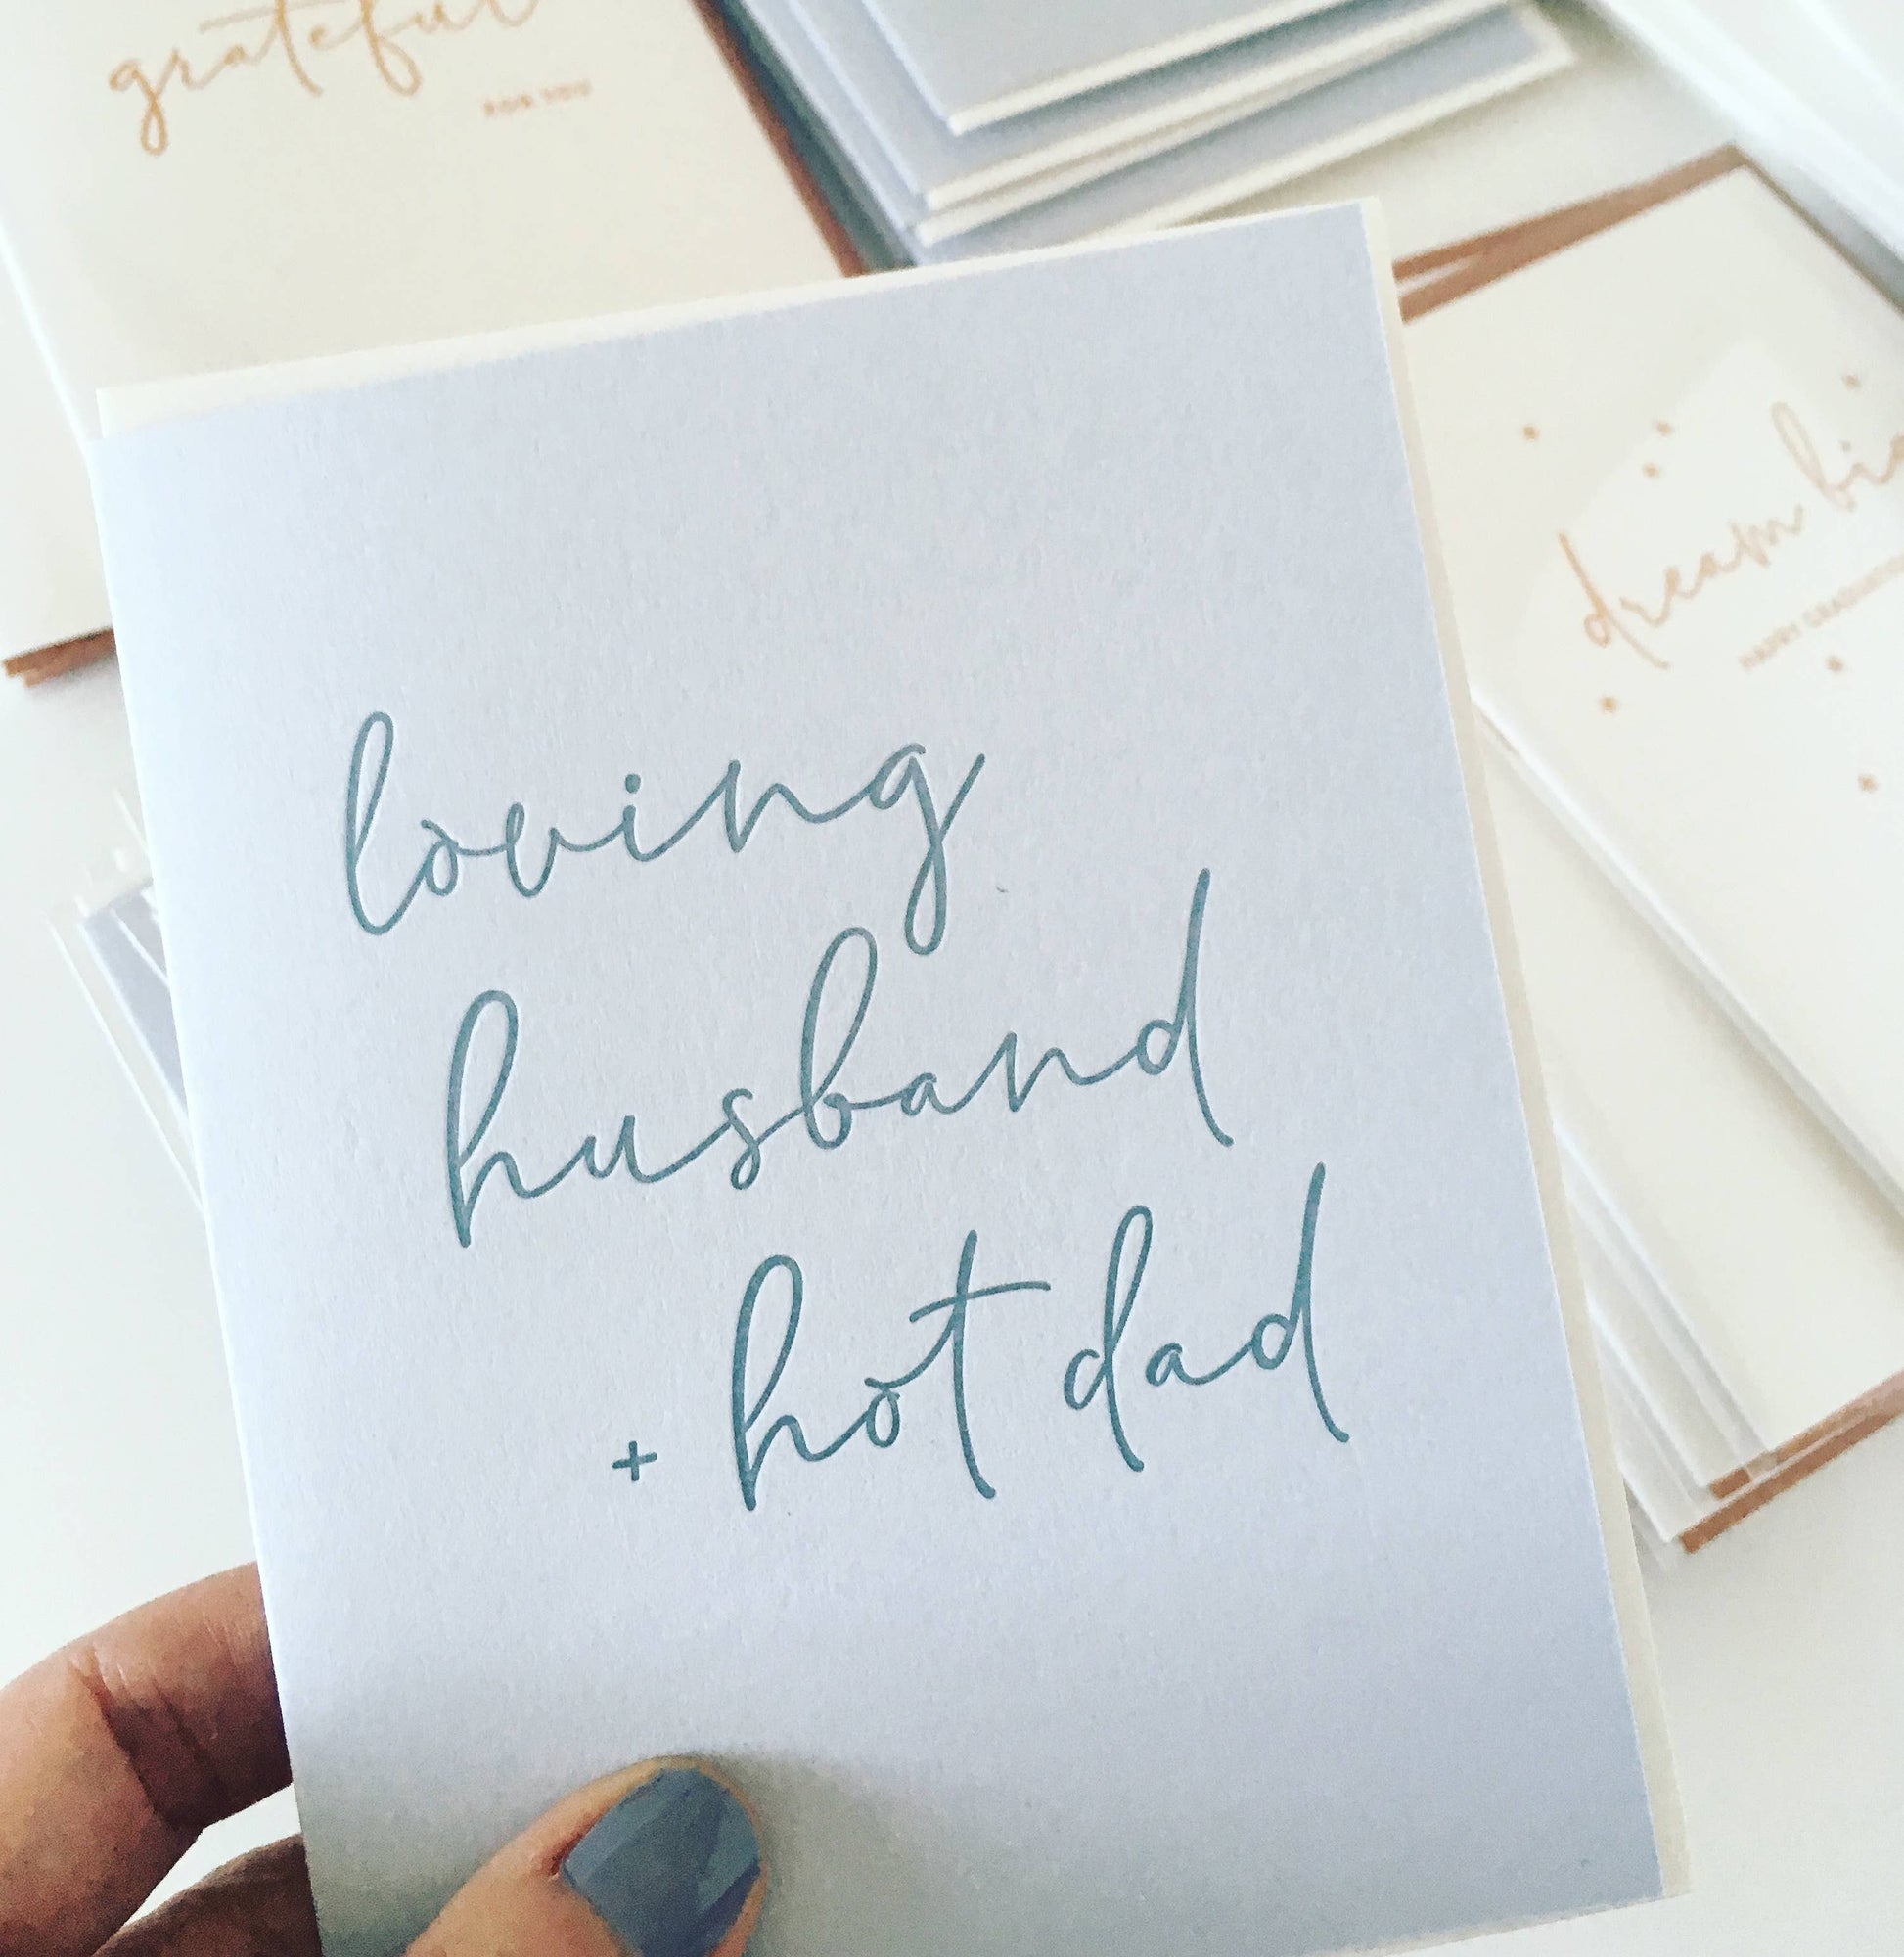 grateful
FOR YOU
dream big
HAPPY GRADUATION
loving
husband
+ hot dad